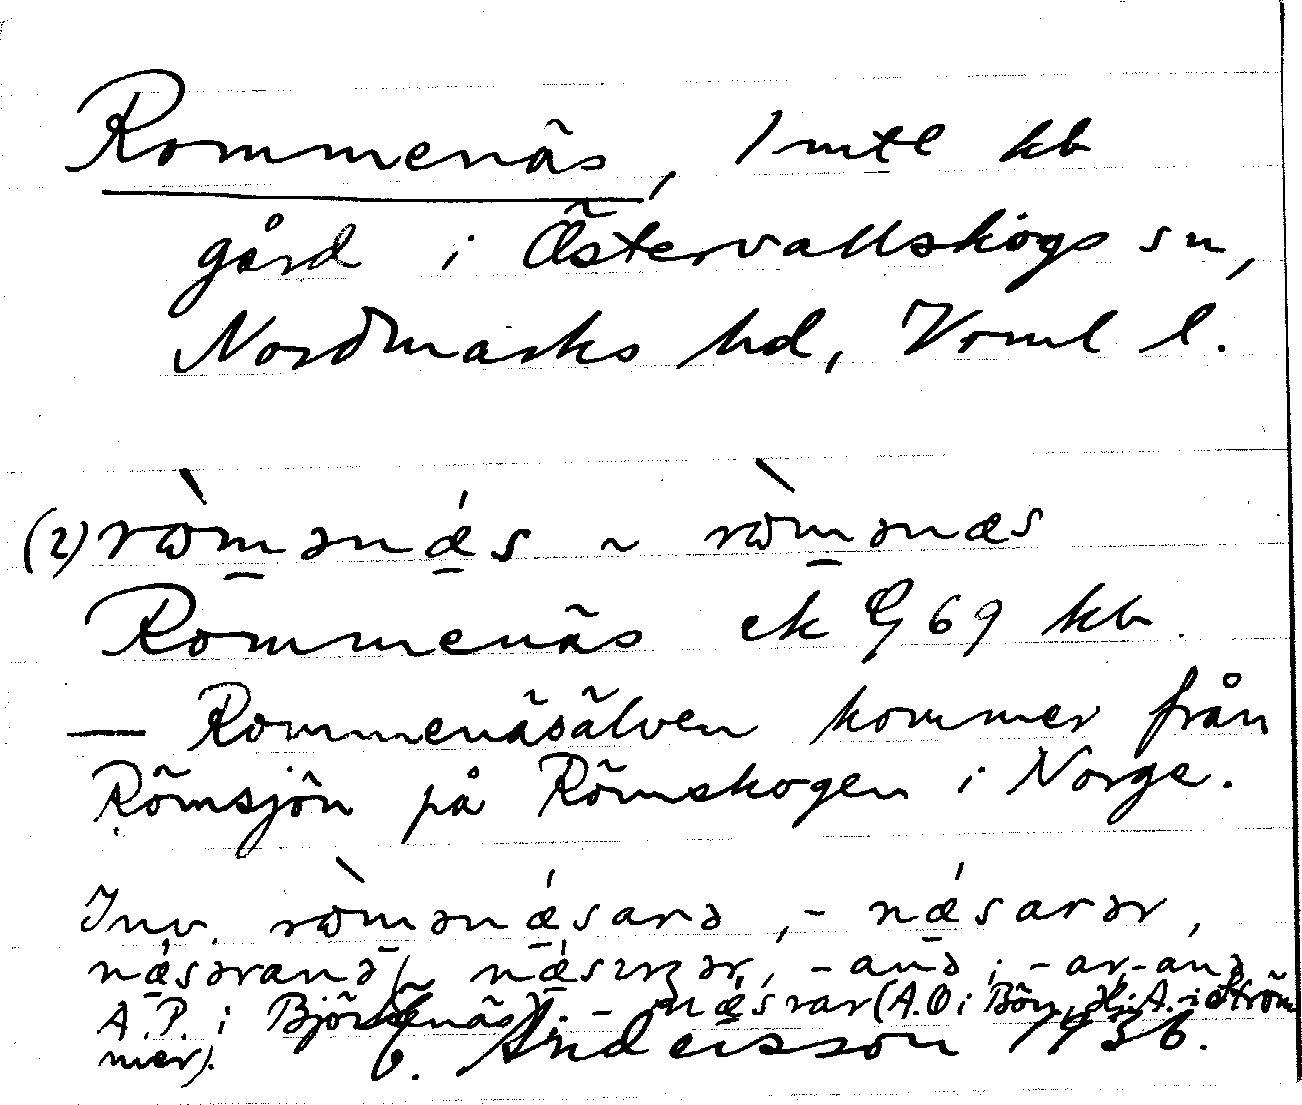 Rommenäs, 1 mtl kb
gård i Östervallskogs sn,
Nordmarks hd, Vrml l.
(2) ròmǝnǽs ~ ròmǝnæs
Rommenäs ek G 69 kb.
— Rommenäsälven kommer från
Römsjön på Römskogen i Norge.
Inv. ròmǝnǽsarǝ, -nǽsarǝr,
nǽsǝranǝ, -anǝ; -ar, -anǝ
A.P. i - nǽsrar (A.O i Bön, H.A. i Ström
mer). Andersson 1936.